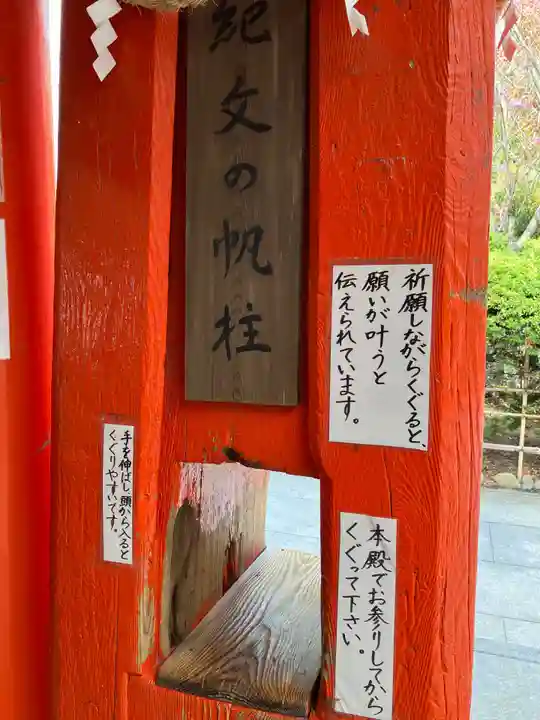 紀文の帆柱
祈願しながらくぐると、
願いが叶うと
伝えられています。
手を伸ばし、頭から入ると
くぐりやすいです。
本殿でお参りしてから
くぐって下さい。